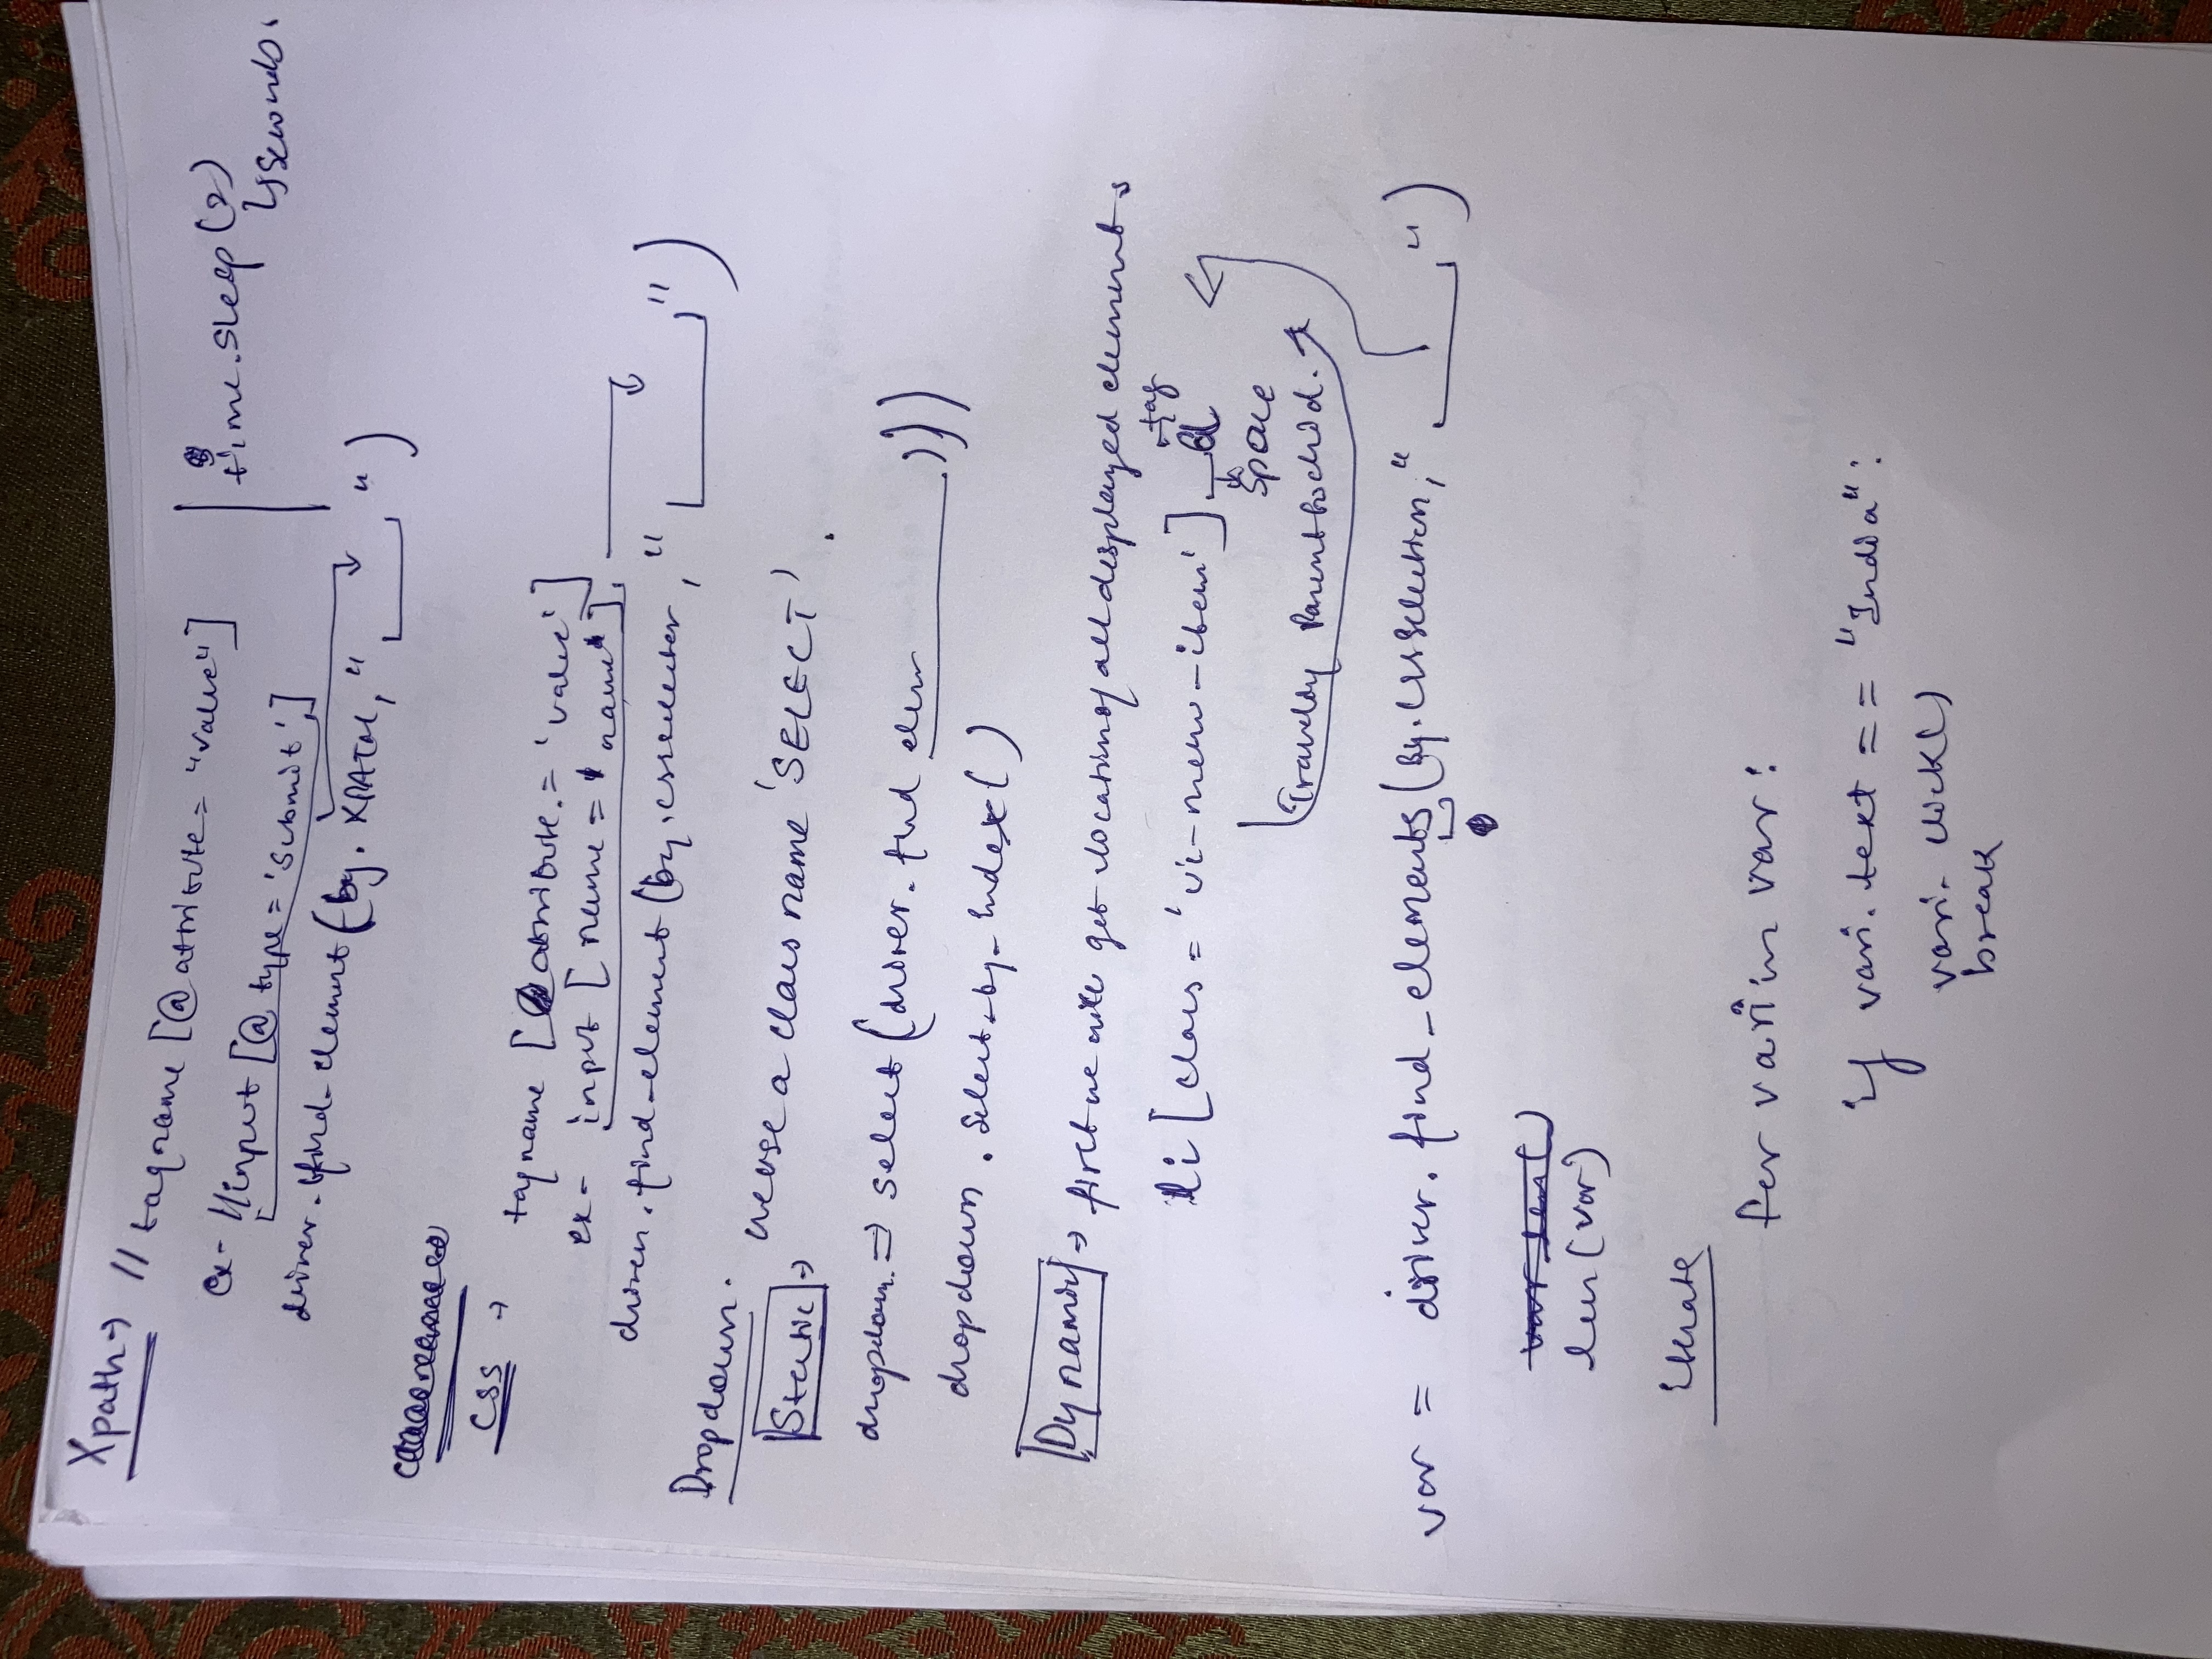 Xpath → // tagname [@ attribute = "value"]
ex- //input [@ type = 'Submit']
driver.find_element (by. XPATH, " ")
time.sleep(2)
↳ seconds.
CSS →
tagname [attribute. = 'value']
ex- input [name = 'name'].
driver.find_element (by.cssselector, " ")
Dropdown.
Static → we use a class name 'SELECT'.
dropdown. => select (driver. find elem )))
dropdown . Select_by_index()
Dynamic → first we will get location of all displayed elements
tag
li [class = 'ui-menu-item'] a
Space
Traveling Parent to child.
var = driver. find_elements (by.cssSelection, " ")
var.len()
len (var)
iterate
for vari in var :
if vari. text == "India" :
vari. click()
break